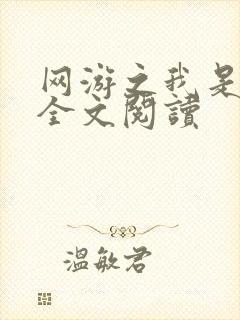 网游之我是
全文阅读
温敏君